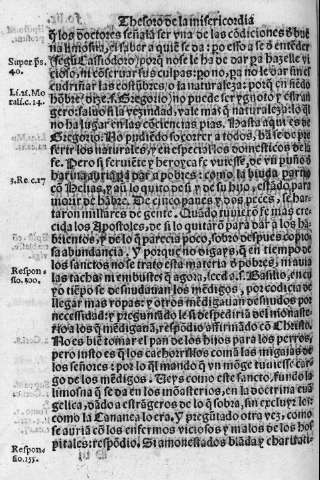 Thesoro de la misericordia
q̃ los doctores señalã ser vna de las cõdiciones d̃ bue
na limosna, el saber a quiẽ se da: po esso a se d̃ entẽder
Super ps. 40.
(segũ Cassiodoro) porq̃ no se le ha de dar pa hazelle vi
cioso, ni cõseruar sus culpas: po no, pa no le dar fin es
cudriñar las costũbres, o la naturaleza: porq̃ en siẽdo
Li. 21. Mo rali. c. 14.
hõbre, dize. s. Gregorio, no puede ser ygnoto y estran
gero: saluo si la vezindad, vale mas q̃ naturaleza: lo q̃
no ha lugar en las cõciencias pias. Hasta aqui es de
Gregorio: No pudiẽdo socorrer a todos, ha se de pre
ferir los naturales, y en especial los domesticos de la
fe. Pero si feruiẽte y heroyca fe vuiesse, de vn puño d̃
3. Re. c. 17
harina auria q̃ dar a pobres: como la biuda partio
cõ Helias, y aũ lo quito de si y de su hijo, estãdo para
morir de hãbre. De cinco panes y dos peces, se har
taron millares de gente. Quãdo tuuierõ fe mas cre
cida los Apostoles, de si lo quitarõ para dar a los hã
brientos, y de lo q̃ parecia poco, sobro despues copio
sa abundancia. Y porque no digays, q̃ en tiempo de
los sanctos no se trato esta materia d̃ pobres, ni auia
Respon sio. 100.
las tachas ni enbustes q̃ agora, leed a. s. Basilio, en cu
yo tiẽpo se desnudauan los mẽdigos, por codicia de
llegar mas ropas: y otros mẽdigauan desnudos por
necessidad: y preguntãdo le si despediriã del monaste
rio a los q̃ mẽdiganã, respõdio affirmãdo cõ Christo
No es biẽ tomar el pan de los hijos para los perros,
pero justo es q̃ los cachorrillos comã las migajas de
los señores: por lo q̃l mando q̃ vn mõge tuuiesse car
go de los mẽdigos. Veys como este sancto, fundo la
limosna q̃ se da en los mõasterios, en la doctrina euã
gelica, dãdo a estrãgeros de lo q̃ sobra, sin excluyr los
como la Cananea lo era. Y pregũtado otra vez, como
se auriã cõ los enfermos viciosos y malos de los hos
Respon sio. 155.
pitales: respõdio. Si amonestados blãda y charitati-